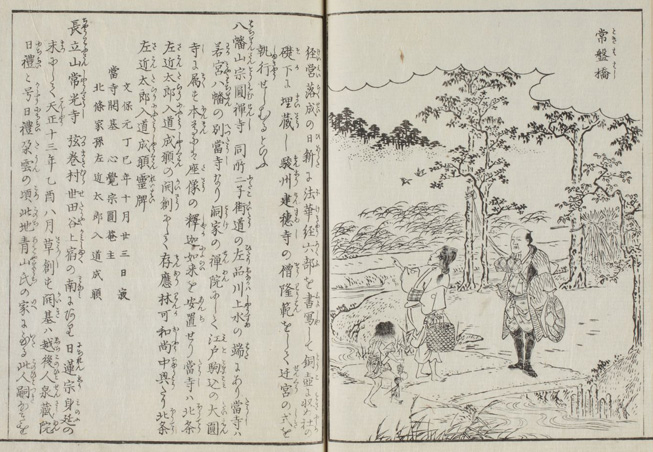 常盤橋
ときはばし
経営落成の日新に法華経六部を書写して銅壺に収め社の
礎下に埋蔵し駿州建穂寺の僧隆範をして迁宮の式を
執行せしむるとのふ
八幡山宗圓禅寺 同所二子街道の左品川上水の端にあり當寺ハ
若宮八幡の別當寺なり洞家の禅院にして江戸駒込の大圓
寺に属も本尊は座像の釋迦如来を安置せり當寺ハ北条
左近太郎入道成願の開創にして春應林可和尚中興たり北条
左近太郎入道成願霊牌
文保元丁巳年十月廿三日寂
當寺開基 心覺宗圓菴主
北條家孫左近太郎入道成願
長立山常光寺 弦巻村世田谷上宿の南にあり日蓮宗身延の
末にして天正十三年乙酉八月草創も開基ハ越後人泉蔵院
日禮と号日禮発雲の頃此地青山氏の家に此人嗣